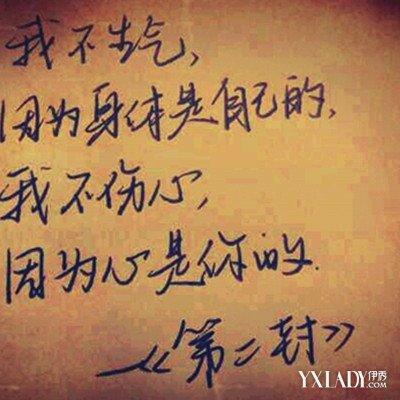 我不生气,
因为身体是自己的,
我不伤心,
因为心是你的.
—《第二封》
YXLADY伊秀
.COM